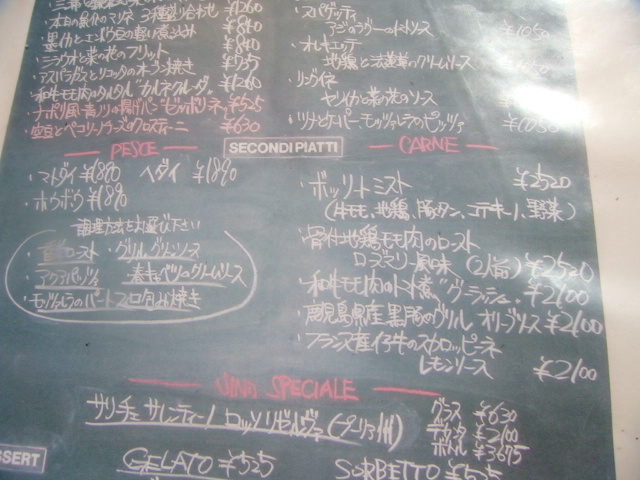 本日の鮮魚のマリネ 3種盛り合わせ ¥1260
墨イカとエンドウ豆の軽い煮込み ¥840
シラウオと菜の花のフリット ¥840
アスパラガスとリコッタのオーブン焼き ¥735
和牛モモ肉のタルタル カルネクルーダ ¥1260
ナポリ風青ノリの揚げパン“ゼッポリーネ” ¥525
空豆とペコリーノチーズのクロスティーニ ¥630
・スパゲッティ
アジのラグーのトマトソース ¥1050
・オレキエッテ
地鶏と法蓮草のクリームソース
・リングイネ
ヤリイカと菜の花のソース
・ツナとケーパー、モッツァレラのピッツァ ¥1050
PESCE
SECONDI PIATTI
CARNE
・マトダイ ¥1890 ヘダイ ¥1890
・ホウボウ ¥1890
調理方法をお選び下さい
ロースト ・グリル グリーンソース
・アクアパッツァ 春キャベツのクリームソース
・モッツァレラのパートフィロ包み焼き
・ボッリートミスト ¥2520
(牛モモ、地鶏、豚タン、コテキーノ、野菜)
・骨付地鶏モモ肉のロースト
ローズマリー風味 (2人前) ¥2520
・和牛モモ肉のトマト煮“グーラッシュ” ¥2100
・鹿児島県産黒豚のグリル オリーブソース ¥2100
・フランス産仔牛のスカロッピーネ
レモンソース ¥2100
VINI SPECIALE
サリーチェ サレンティーノ ロッソ リゼルヴァ (プーリア州)
グラス ¥630
デキャンタ ¥2100
ボトル ¥3675
SSERT
GELATO ¥525 SORBETTO ¥525